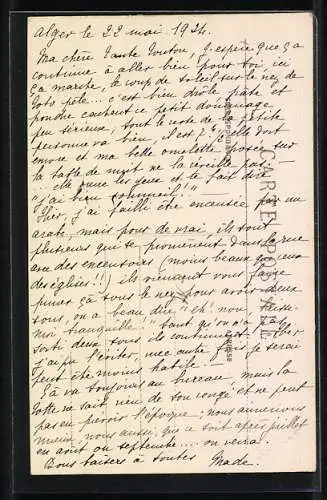 Alger le 22 mai 1924.
Ma chère Tante Touton, J'espère que ça
continue à aller bien pour toi, ici
ça marche, le coup de soleil sur le nez de
Toto pèle... c'est bien drôle pâte et
poudre cachent ce petit dommage
peu sérieux, tout le reste de la petite
personne va bien il est 7 h elle dort
encore et ma belle omelette posée sur
la table de nuit ne la réveille pas.
... elle ouvre les yeux et te fait dire
"j'ai bien sommeil!"
Hier, j'ai failli être encensée par un
arabe, mais pour de vrai, ils sont
plusieurs qui se promènent dans la rue
avec des encensoirs (moins beaux que ceux
des églises!!) ils viennent vous
sous le nez pour avoir deux
sous, on a beau dire "eh! non laisse-
moi tranquille!" tant qu'on n'a pas
sorti deux sous ils continuent. Hier
j'ai pu l'éviter, une autre fois je serai
peut être moins habile.
Ça va toujours au bureau mais la
Totte ne sait rien de son congé et ne peut
pas en prévoir l'époque; nous aimerions
mieux, nous aussi, que ce soit après juillet
en août ou septembre... on verra.
Bons baisers à toutes Made.
CARTE POSTALE